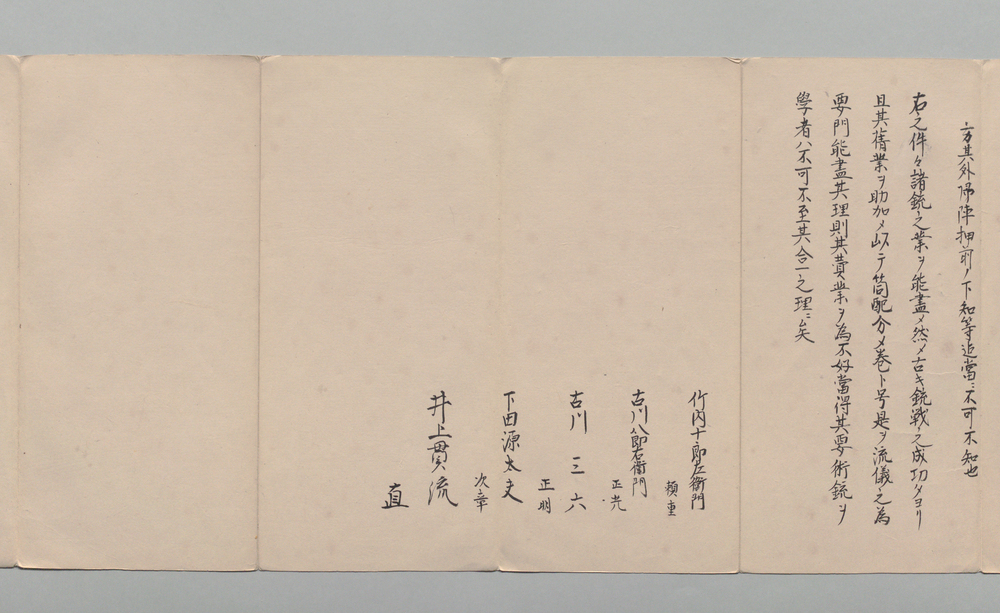 方其外帰陣押前ノ下知等追當ニ不可不知也
右之件々諸銃之業ヲ能盡メ然メ古キ銃戦之成功タヨリ
且其舊業ヲ助加メ以テ筒配分メ巻ト号是ヲ流儀之為
要門能盡其理則其費業ヲ為不好當得其要術銃ヲ
學者ハ不可不至其合一之理ニ矣
竹内十郎左衛門
頼重
古川八郎右衛門
正光
古川三六
正明
下田源太夫
次章
井上貫流
直